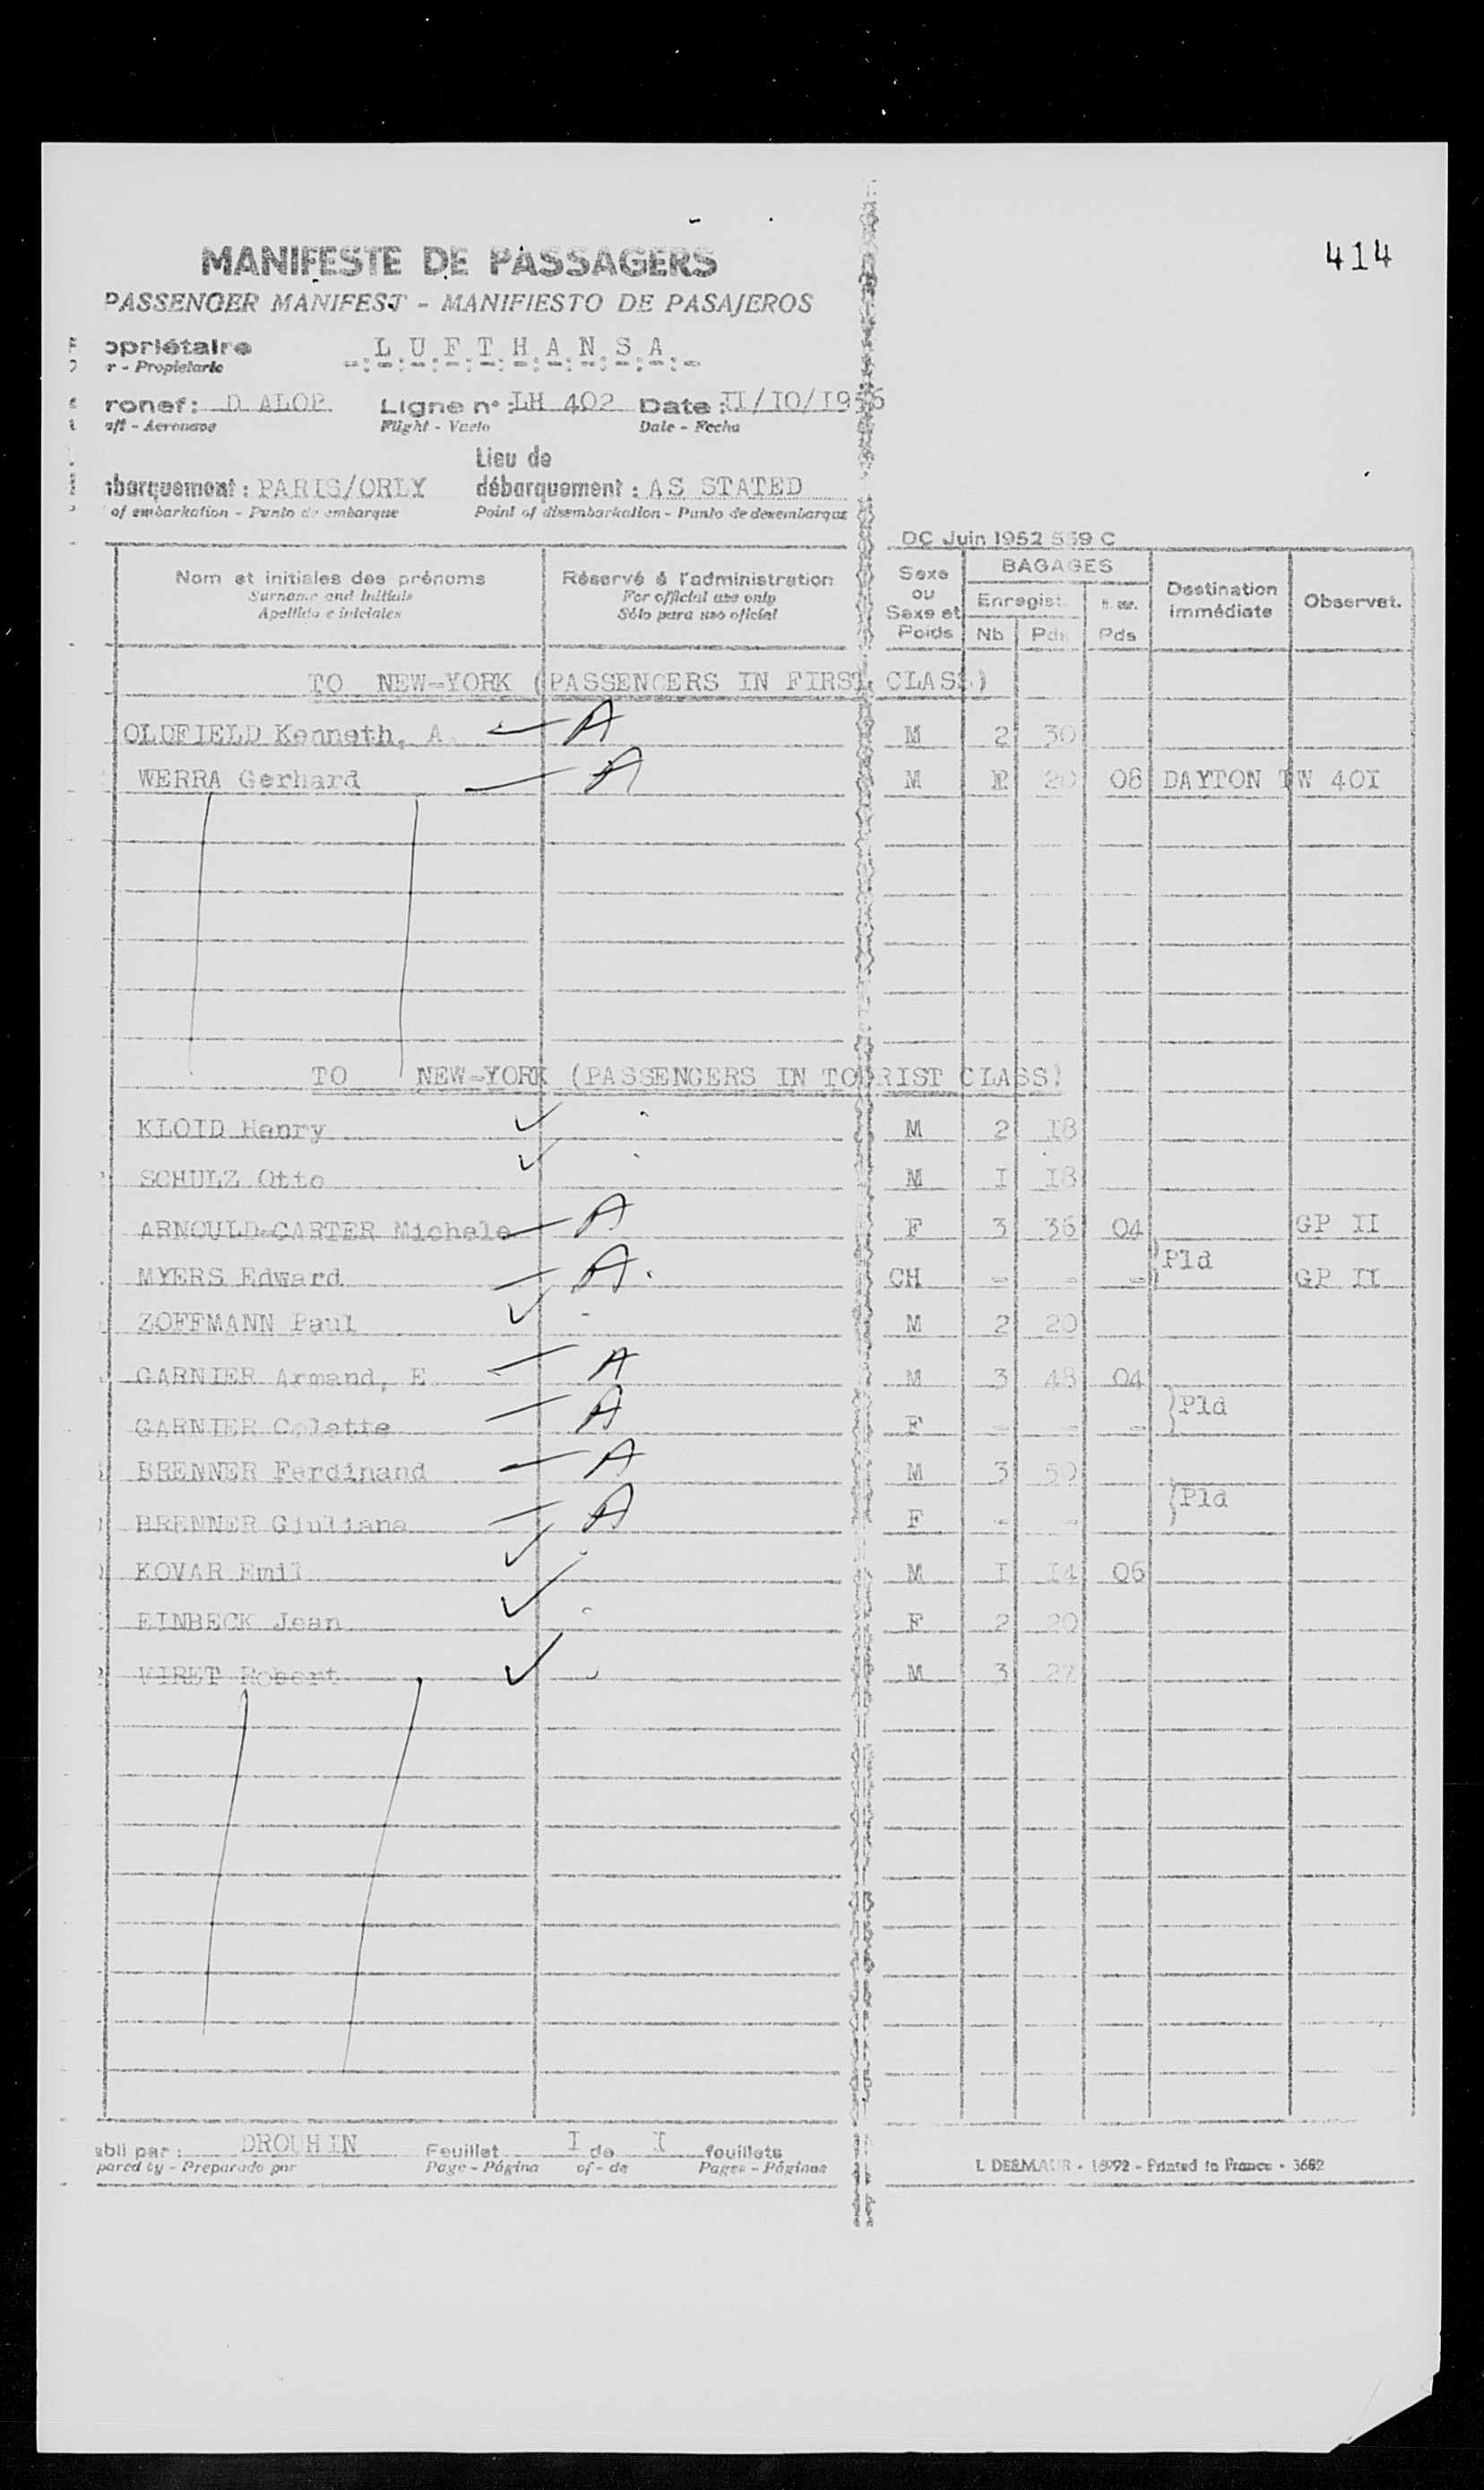 414
MANIFESTE DE PASSAGERS
PASSENGER MANIFEST - MANIFIESTO DE PASAJEROS
opriétaire L U F T H A N S A
r - Propietario -:-:-:-:-:-:-:-:-:-
ronef: D ALOP Ligne n° : LH 402 Date : II/IO/I956
aft - Aeronave Flight - Vuelo Date - Fecha
Lieu de
nbarquement : PARIS/ORLY débarquement : AS STATED
of embarkation - Punto de embarque Point of disembarkation - Punto de desembarque
DC Juin 1952 559 C
Nom et initiales des prénoms Réservé à l'administration Sexe ou Sexe et Poids BAGAGES Destination immédiate Observat.
Surname and initials For official use only Enregist.
Apellido e iniciales Sólo para uso oficial Nb Pds Pds
TO NEW-YORK (PASSENGERS IN FIRST CLASS)
OLDFIELD Kenneth, A. — A M 2 30
WERRA Gerhard — A M 20 08 DAYTON TW 40I
TO NEW-YORK (PASSENGERS IN TOURIST CLASS)
KLOID Henry ✓ M 2 I8
SCHULZ Otto ✓ M I I8
ARNOULD-CARTER Michele — A F 3 36 04 GP II
} Pld
MYERS Edward — A. CH - - - GP II
ZOFFMANN Paul ✓ M 2 20
GARNIER Armand, E — A M 3 48 04
} Pld
GARNIER Colette — A F - - -
BRENNER Ferdinand — A M 3 50
} Pld
BRENNER Giuliana — A F - -
KOVAR Emil ✓ M I I4 06
EINBECK Jean ✓ F 2 20
VIRET Robert ✓ M 3 27
abli par : DROUHIN Feuillet I de I feuillets
pared by - Preparado por Page - Página of - de Pages - Páginas
L DELMAUR - 16992 - Printed in France - 3682